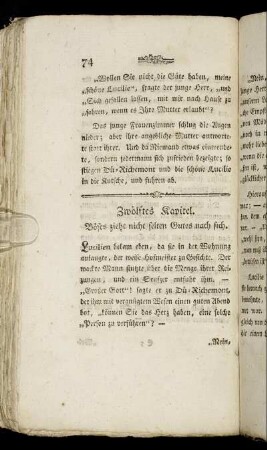 74
„Wollen Sie nicht die Güte haben, meine
„schöne Lucilie“, fragte der junge Herr, „und
„Sich gefallen lassen, mit mir nach Hause zu
„fahren, wenn es Ihre Mutter erlaubt“?
Das junge Frauenzimmer schlug die Augen
nieder; aber ihre angebliche Mutter antworte-
te statt ihrer. Und da Niemand etwas einwende-
te, sondern jedermann sich zufrieden bezeigte; so
stiegen Dü-Richemont und die schöne Lucilie
in die Kutsche, und fuhren ab.
Zwölftes Kapitel.
Böses zieht nicht selten Gutes nach sich.
Lucilien bekam eben, da sie in der Wohnung
anlangte, der weise Hofmeister zu Gesichte. Der
wackre Mann stutzte über die Menge ihrer Rei-
zungen; und ein Seufzer entfuhr ihm. —
„Großer Gott“! sagte er zu Dü-Richemont,
der ihm mit vergnügtem Wesen einen guten Abend
bot, „können Sie das Herz haben, eine solche
„Person zu verführen“? —
„Nein,